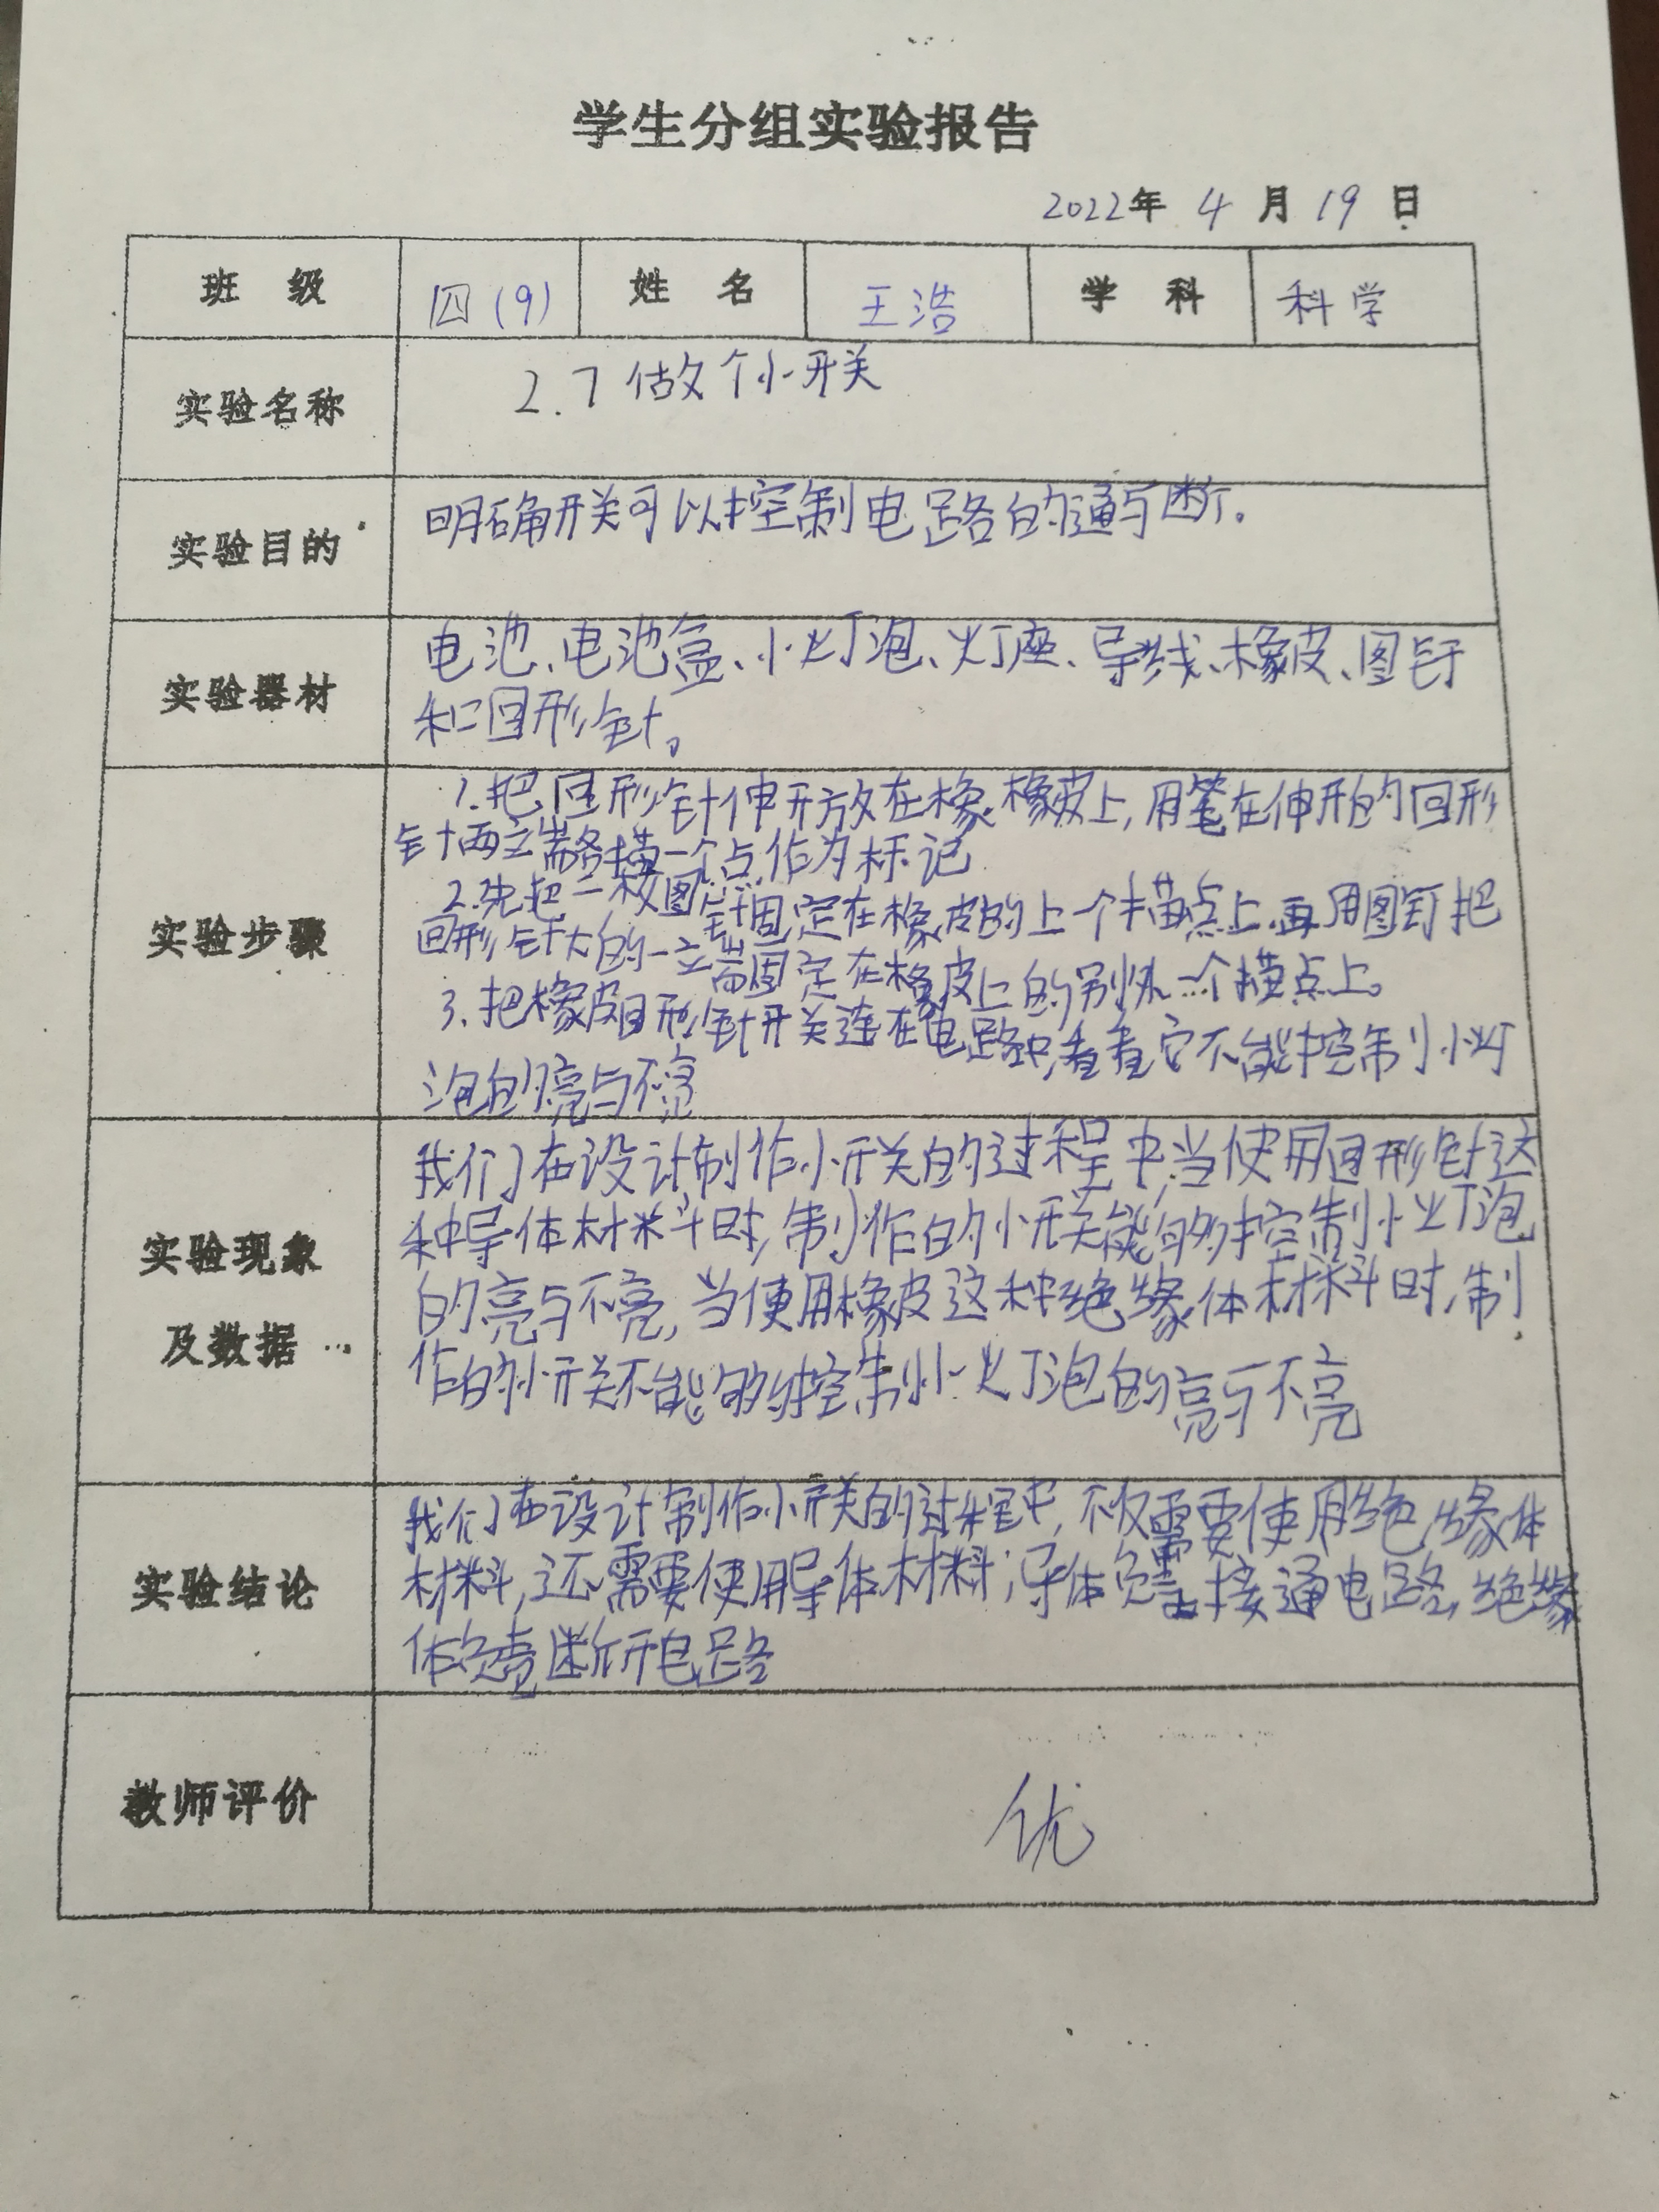 学生分组实验报告
2022年 4 月 19 日
班 级 四(9) 姓 名 王浩 学 科 科学
实验名称 2.7 做个小开关
实验目的 明确开关可以控制电路的通与断。
实验器材 电池、电池盒、小灯泡、灯座、导线、橡皮、图钉
和回形针。
实验步骤
1.把回形针伸开放在橡橡皮上,用笔在伸开的回形
针两端各描一个点作为标记
2.先把一枚图针固定在橡皮的上一个描点上再用图钉把
回形针大的一端固定在橡皮上的别外一个描点上。
3.把橡皮回形针开关连在电路中,看看它不能控制小灯
泡的亮与不亮
实验现象
及数据
我们在设计制作小开关的过程中,当使用回形针这
种导体材料时,制作的小开关能够控制小灯泡
的亮与不亮,当使用橡皮这种绝缘体材料时,制
作的小开关不能够控制小灯泡的亮与不亮
实验结论
我们在设计制作小开关的过程中,不仅需要使用绝缘体
材料,还需要使用导体材料;导体负责接通电路,绝缘
体负责断开电路
教师评价 优